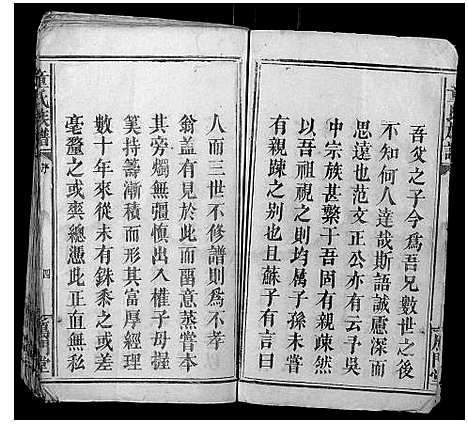 吾父之子今爲吾兄數世之後
不知何人達哉斯語誠慮深而
思遠也范文正公亦有云予吳
中宗族甚繁于吾固有親疎然
以吾祖視之則均屬子孫未嘗
有親踈之别也且蘇子有言曰
人而三世不修譜則爲不孝
翁蓋有見於此而畱意蒸嘗本
其旁燭無彊慎出入權子母握
筭持籌漸積而形其富厚經理
數十年來從未有銖黍之或差
毫釐之或爽總憑此正直無私
董氏族譜
序
四